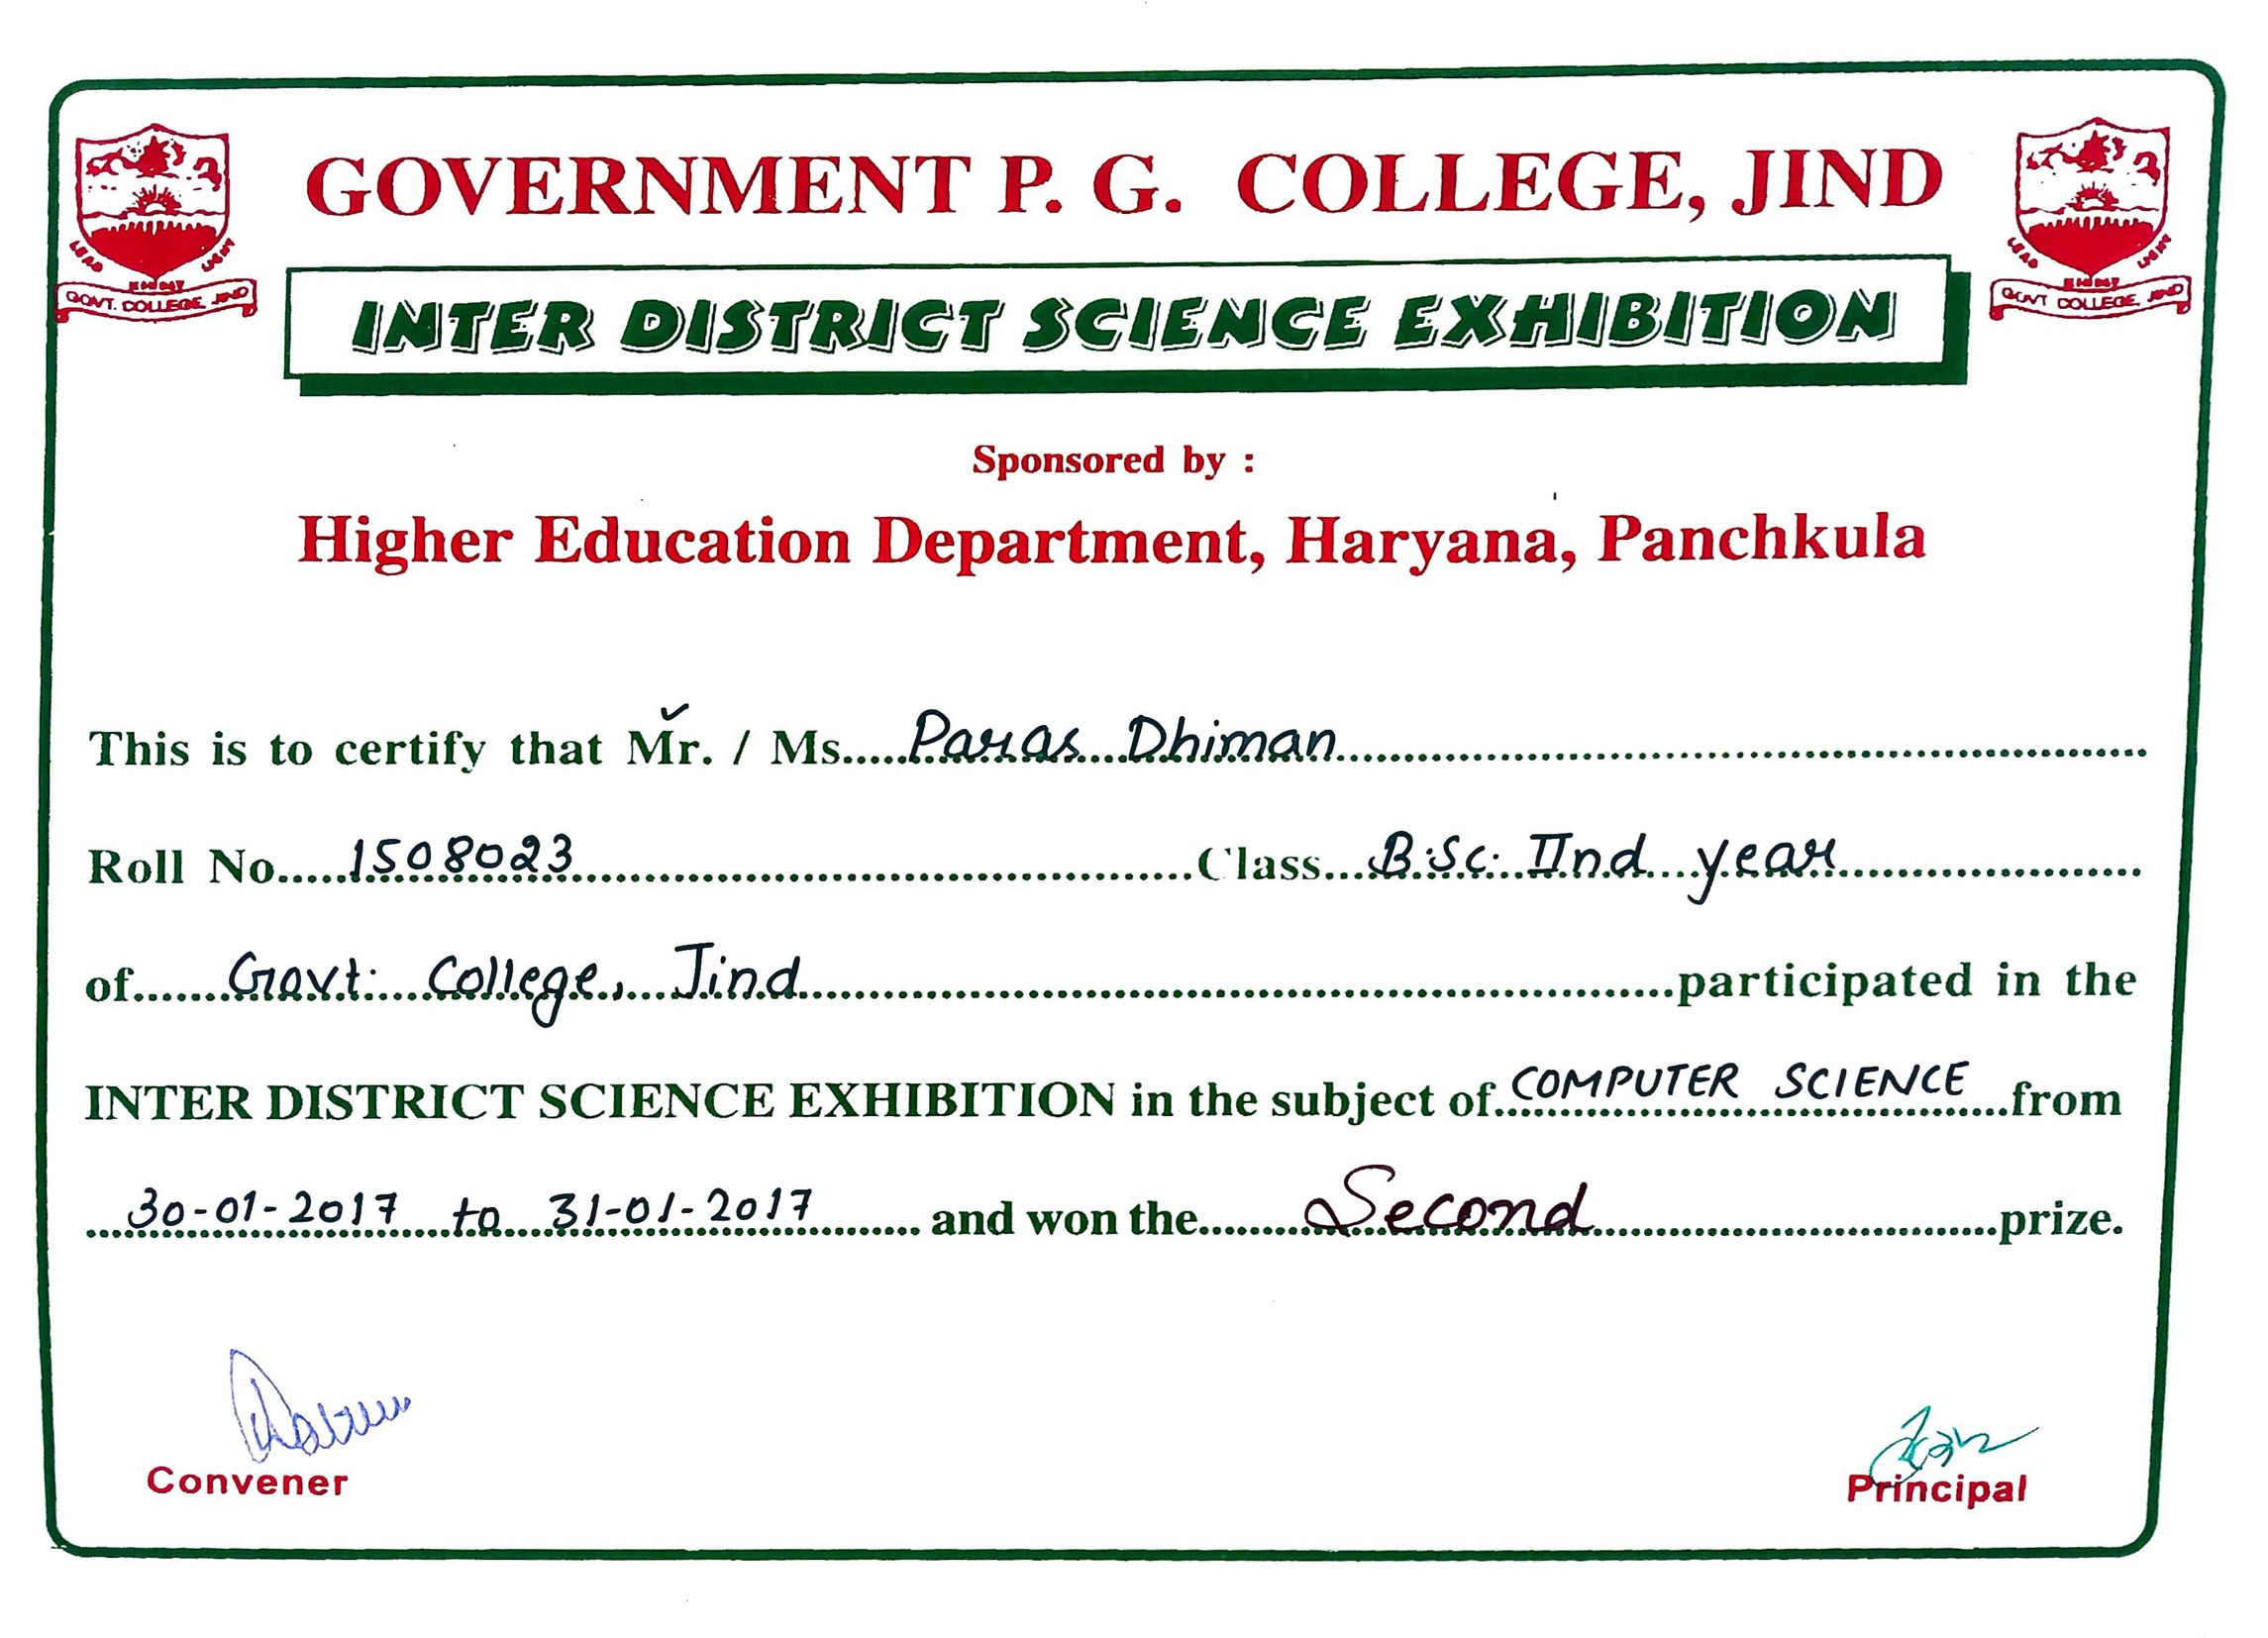 GOVERNMENT P. G. COLLEGE, JIND
LEAD KINDLY LIGHT
GOVT. COLLEGE, JIND
LEAD KINDLY LIGHT
GOVT COLLEGE, JIND
INTER DISTRICT SCIENCE EXHIBITION
Sponsored by :
Higher Education Department, Haryana, Panchkula
This is to certify that Mr. / Ms.....Paras Dhiman.....
Roll No.....1508023.....Class...B.Sc. IInd year.....
of.....Govt. College, Jind.....participated in the
INTER DISTRICT SCIENCE EXHIBITION in the subject of COMPUTER SCIENCE from
30-01-2017 to 31-01-2017 and won the.....Second.....prize.
Convener
Principal